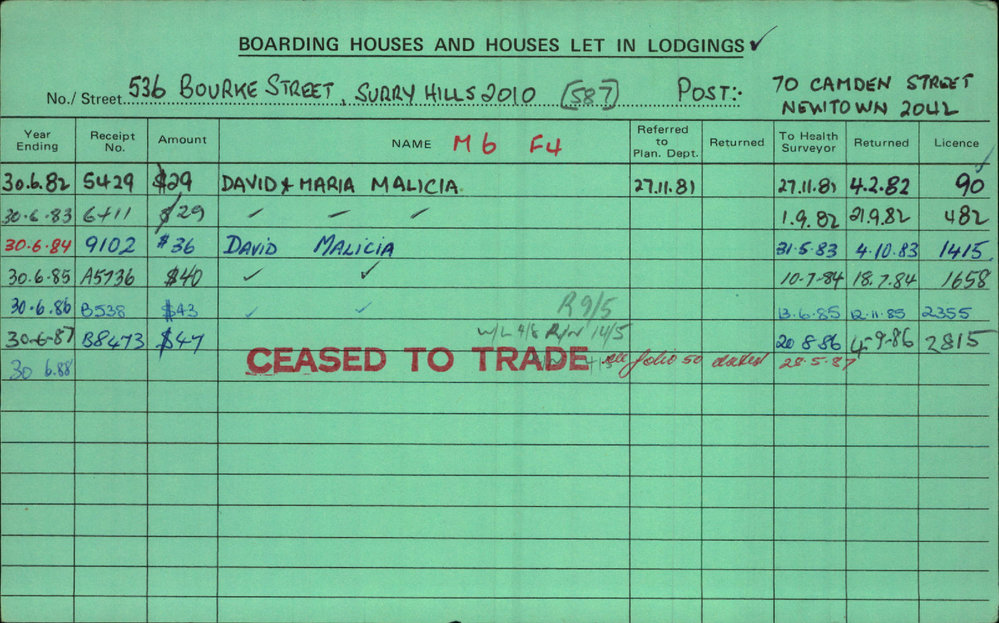 BOARDING HOUSES AND HOUSES LET IN LODGINGS ✓
No./Street 536 BOURKE STREET, SURRY HILLS 2010 [587] POST:- 70 CAMDEN STREET
NEWTOWN 2042
Year Ending Receipt No. Amount NAME M 6 F4 Referred to Plan. Dept. Returned To Health Surveyor Returned Licence
30.6.82 5429 $29 DAVID & MARIA MALICIA 27.11.81 27.11.81 4.2.82 90
30.6.83 6411 $29 1.9.82 21.9.82 482
30.6.84 9102 $36 DAVID MALICIA 31.5.83 4.10.83 1415
30.6.85 A5736 $40 ✓ ✓ 10.7.84 18.7.84 1658
30.6.86 B538 $43 ✓ ✓ R 9/5 13.6.85 12.11.85 2355
30.6.87 B8473 $47 W/L 4/8 R/W 14/5 20 8.86 4.9.86 2815
30 6.88 CEASED TO TRADE folio 50 dated 28.5.87